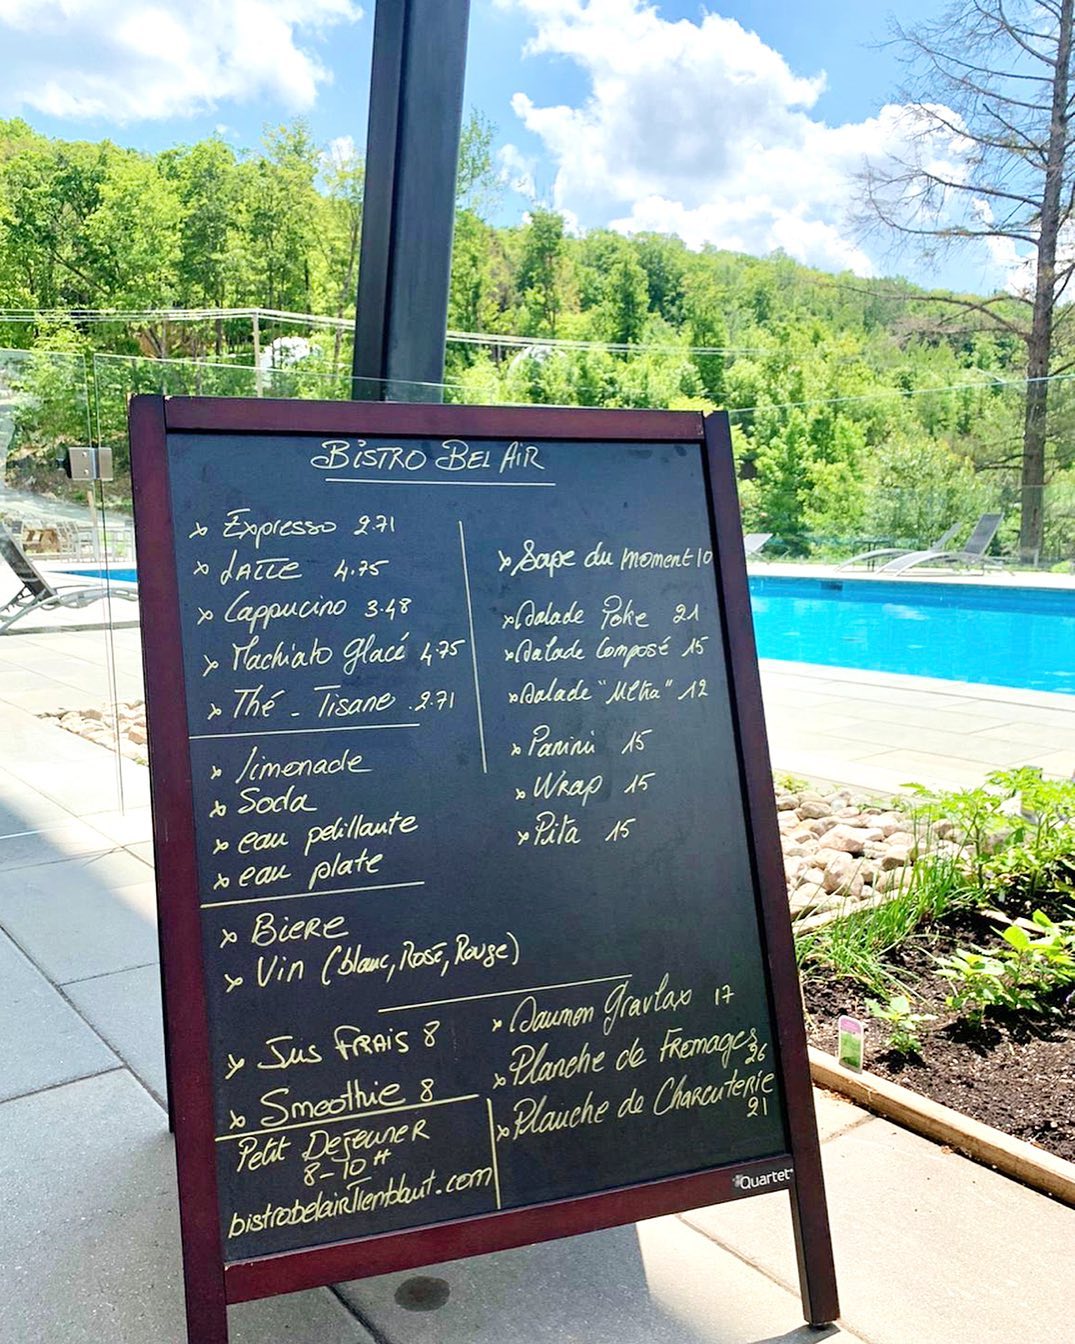 BISTRO BEL AIR
Expresso 2.71
LATTE 4.75
Cappucino 3.48
Machiato glacé 4.75
Thé - Tisane 2.71
limonade
Soda
eau petillante
eau plate
BIERE
Vin (blanc, Rosé, Rouge)
Jus FRAIS 8
Smoothie 8
Petit Dejeuner
8-10H
Sope du moment 10
Salade Poke 21
Salade Composé 15
Salade "Ultra" 12
Panini 15
WRAP 15
Pita 15
Saumon Gravlax 17
Planche de FROMAGES
26
Planche de CHARCUTERIE
21
Quartet